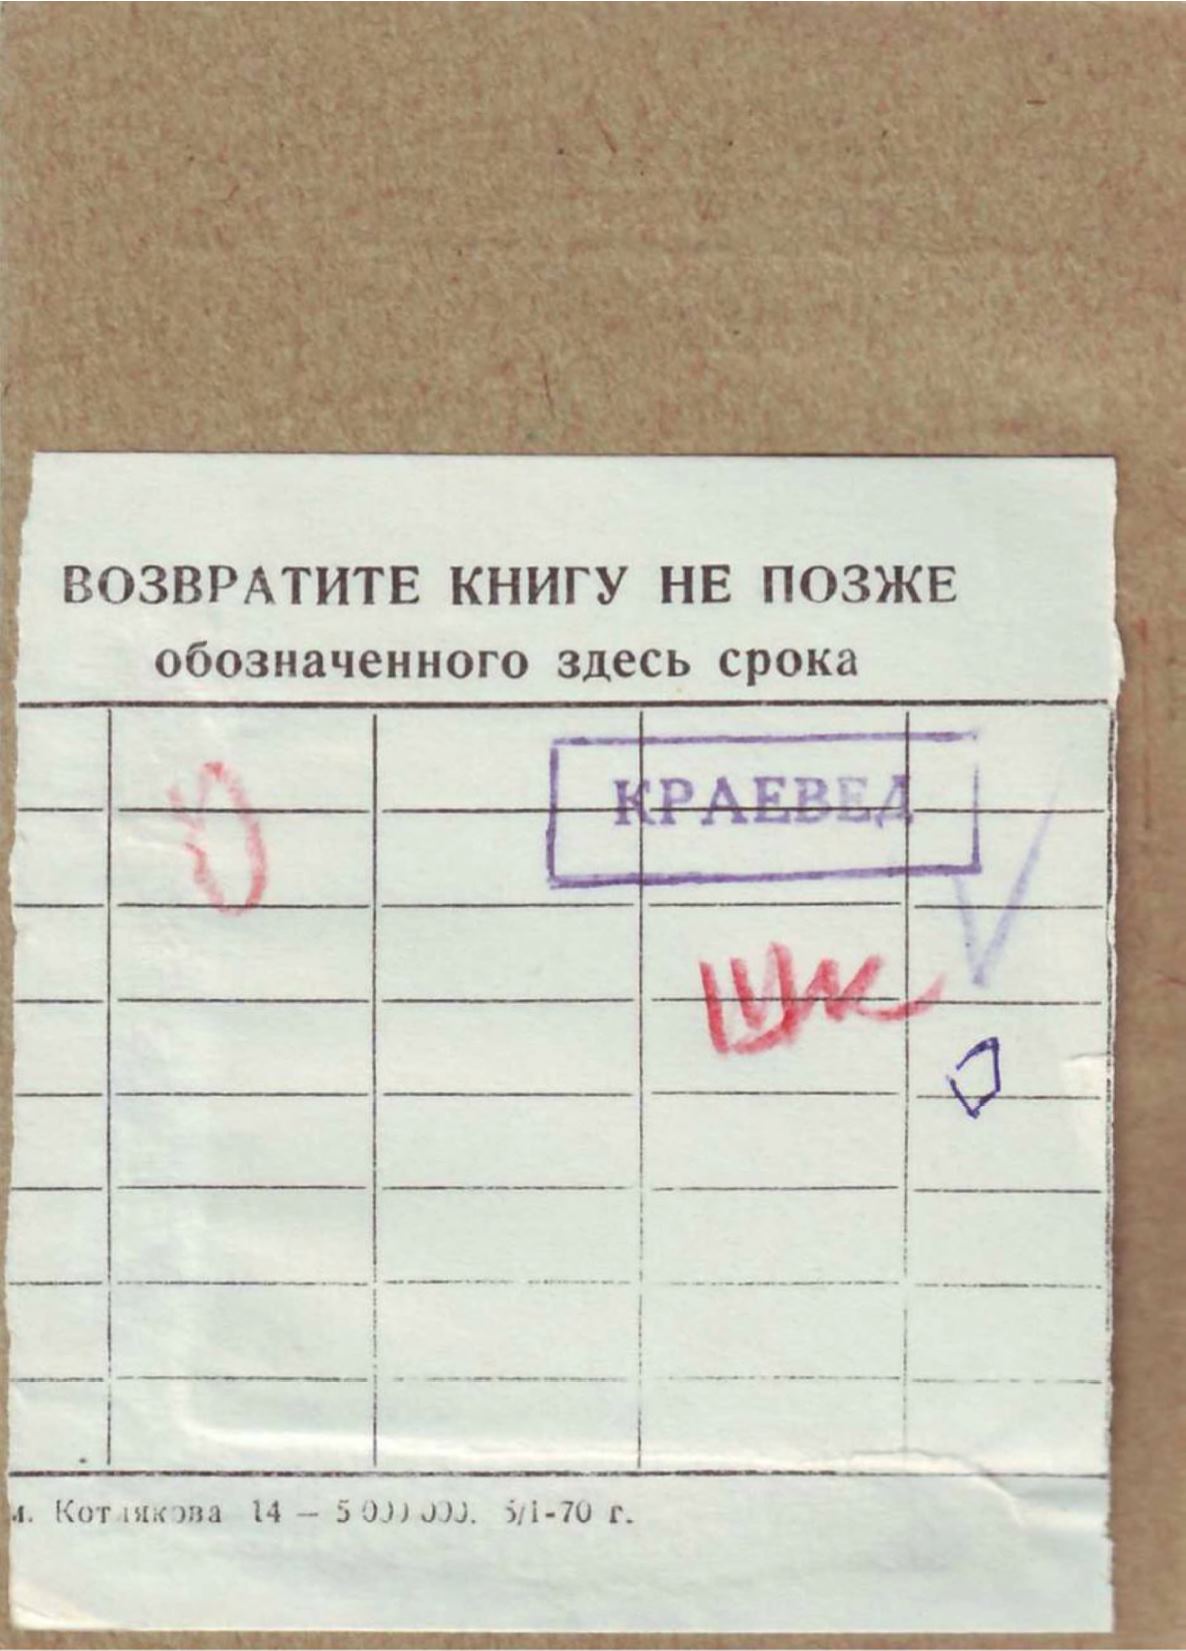 ВОЗВРАТИТЕ КНИГУ НЕ ПОЗЖЕ
обозначенного здесь срока
КРАЕВЕД
м. Котлякова 14 — 5 000 000. 5/I-70 г.